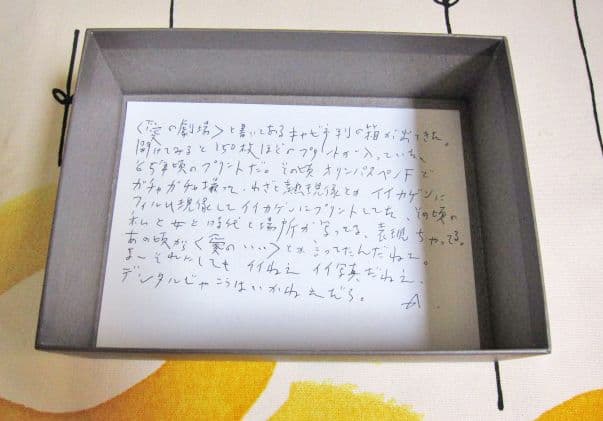 〈愛の劇場〉と書いてあるキャビネ判の箱が出てきた。
開けてみると150枚ほどのプリントが入っていた、
65年頃のプリントだ。その頃オリンパスペンFで
ガチャガチャ撮って、わざと熱現像とかイイカゲンに
フィルム現像してイイカゲンにプリントしてた、その頃の
私と女と時代と場所が写ってる、表現しちゃってる。
あの頃から〈愛の〉とか言ってたんだねェ。
まーそれにしてもイイねェイイ写真だねェ、
デジタルじゃこうはいかねェだろ。 A